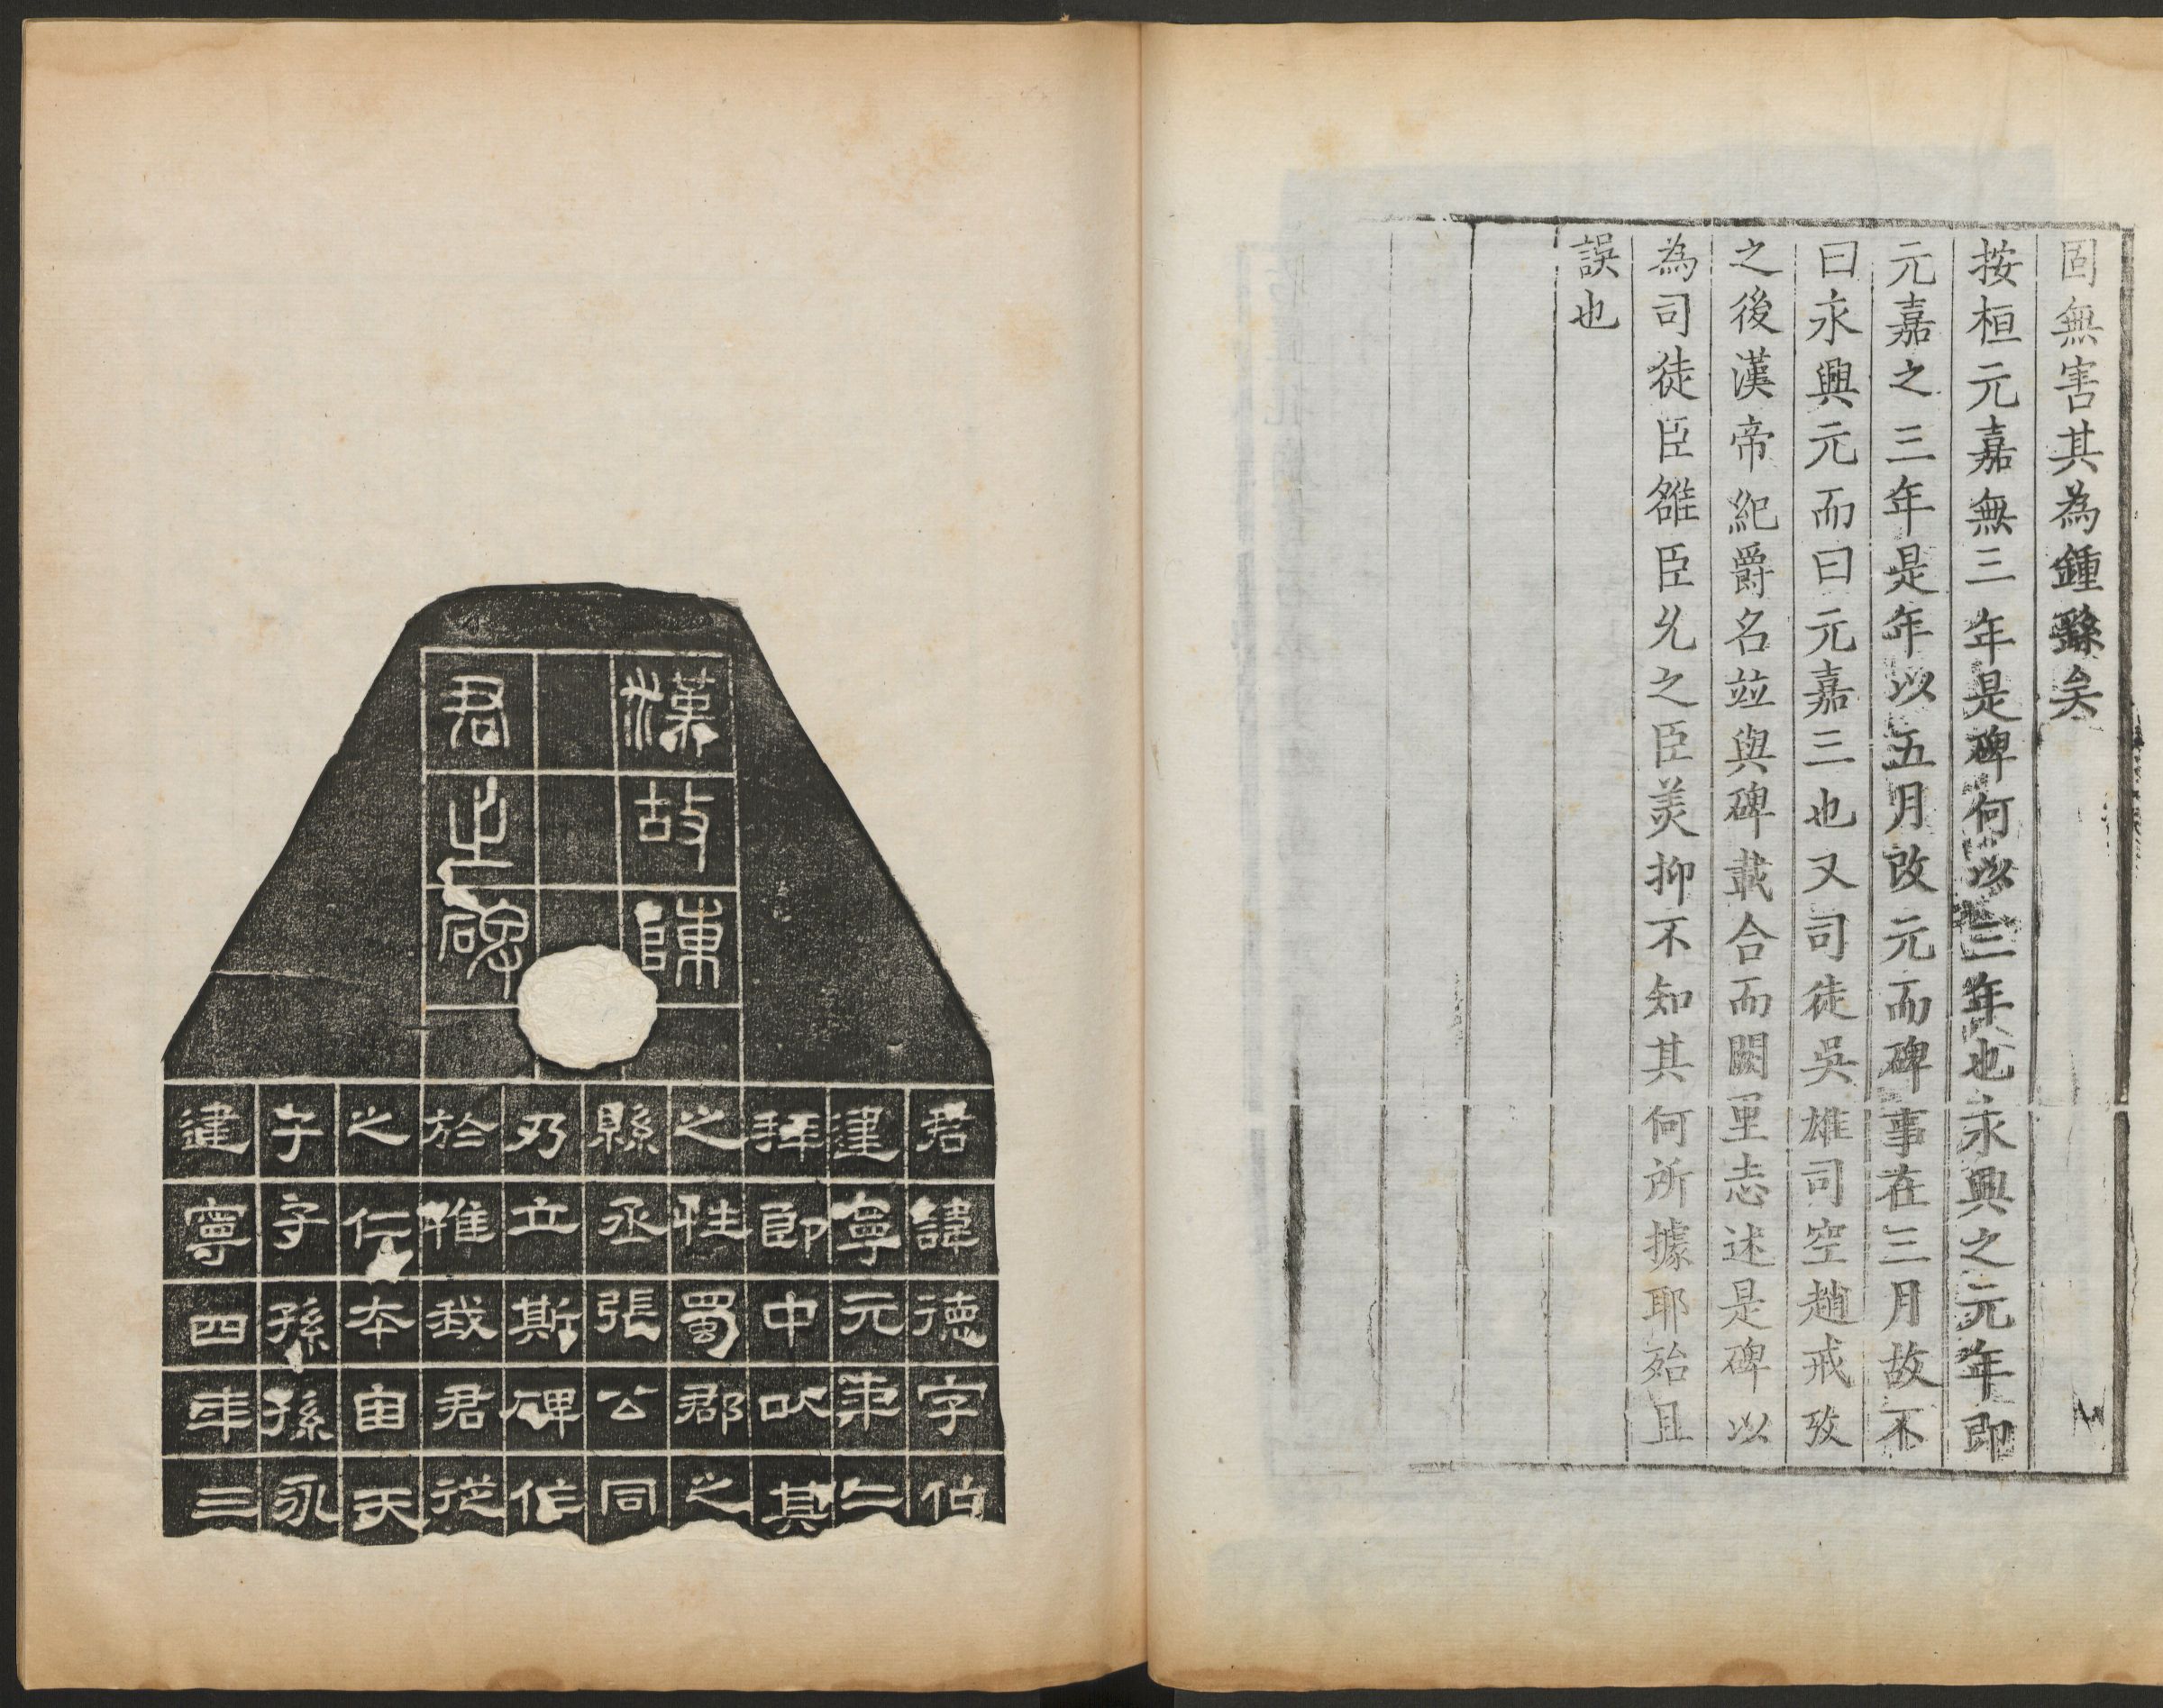 固無害其為鍾繇矣
按桓元嘉無三年是碑何以三年也永興之元年即
元嘉之三年是年以五月改元而碑事在三月故不
曰永興元而曰元嘉三也又司徒吳雄司空趙戒攷
之後漢帝紀爵名竝與碑載合而闕里志述是碑以
為司徒臣雒臣之臣羙抑不知其何所據耶殆且
誤也
漢故陳
君之碑
君諱德字伯
建寧元年二
拜郎中以其
之性蜀郡之
縣丞張公同
乃立斯碑作
於惟我君從
之仁本宙天
子子孫孫永
建寧四年三